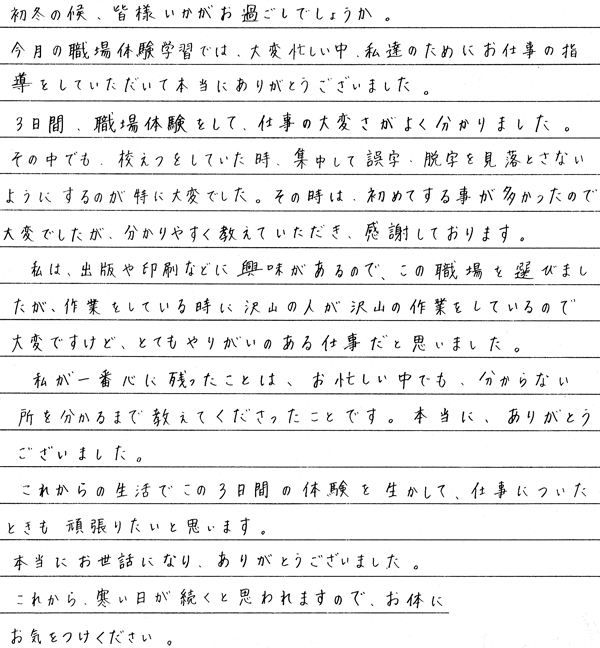 初冬の候、皆様いかがお過ごしでしょうか。
今月の職場体験学習では、大変忙しい中、私達のためにお仕事の指
導をしていただいて本当にありがとうございました。
3日間、職場体験をして、仕事の大変さがよく分かりました。
その中でも、校えつをしていた時、集中して誤字・脱字を見落とさない
ようにするのが特に大変でした。その時は、初めてする事が多かったので
大変でしたが、分かりやすく教えていただき、感謝しております。
私は、出版や印刷などに興味があるので、この職場を選びまし
たが、作業をしている時に沢山の人が沢山の作業をしているので
大変ですけど、とてもやりがいのある仕事だと思いました。
私が一番心に残ったことは、お忙しい中でも、分からない
所を分かるまで教えてくださったことです。本当に、ありがとう
ございました。
これからの生活でこの3日間の体験を生かして、仕事についた
ときも頑張りたいと思います。
本当にお世話になり、ありがとうございました。
これから、寒い日が続くと思われますので、お体に
お気をつけください。